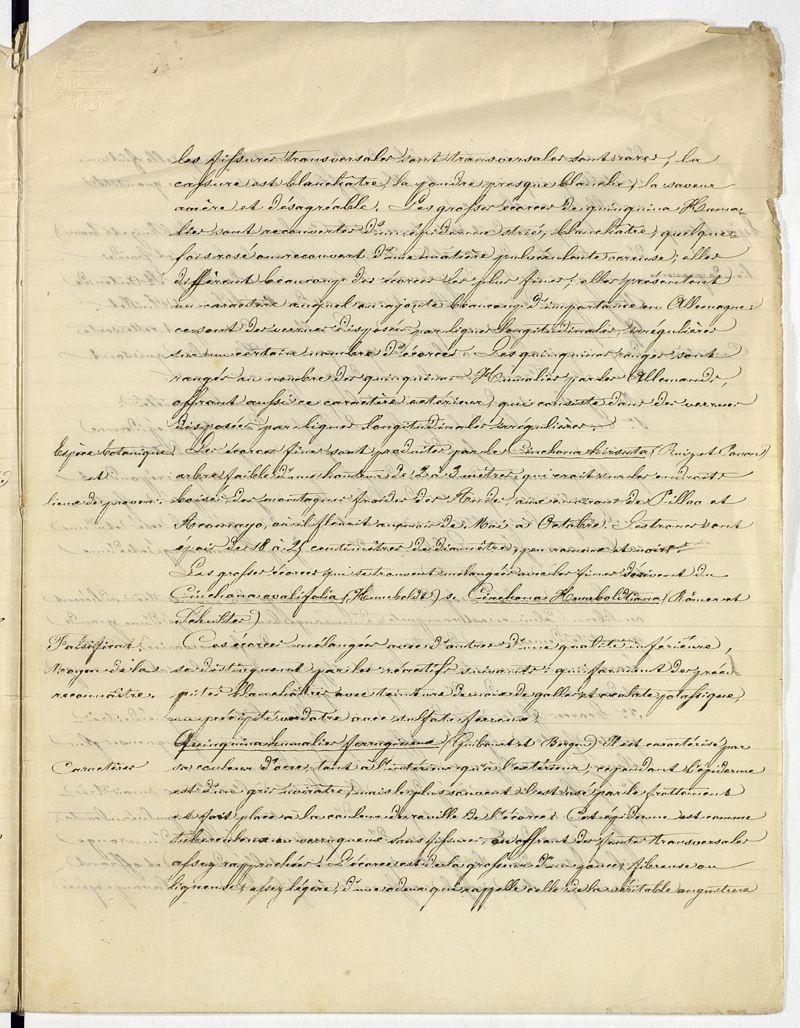 les fissures transversales sont transversales sont rares, la
cassure est blanchâtre, la poudre presque blanche, la saveur
amère et désagréable. Les grosses écorces de quinquina Huma-
lies sont recouvertes d'un épiderme strié, blanchâtre, quelque-
fois rosé ou recouvert d'une matière pulvérulente ; elles
diffèrent beaucoup des écorces les plus fines, elles présentent
un caractère auquel on ajoute beaucoup d'importance en Allemagne:
ce sont des verrues disposées par lignes longitudinales, irregulières
sur un certaine nombre d'écorces. Les quinquinas rouges sont
rangés au nombre des quinquinas Humalies par les Allemands,
offrant aussi ce caractère exterieur, qui consiste dans des verrues
disposées par lignes longitudinales irregulières.
Espèce botanique Les écorces fines sont produites par le Cinchona hirsuta (Ruiz et Pavon)
et arbre faible d'une hauteur de 2 à 3 mètres, qui croit sur les endroits
lieux de proven. boisés des montagnes froides des Andes, aux environs de Pillao et
Acomayo, où il fleurit au mois de Mai à Octobre. Les troncs sont
épais de 18 à 25 centimètres de diamètre, peu rameux et noirs.
Les grosses écorces qui se trouvent mélangées avec les fines dérivent du
Cinchona ovalifolia (Humboldt) se Cinchona Humboldtiana (Römer et
Schulter)
Falsificat. Ces écorces mélangées avec d'autres d'une qualité inférieure,
Moyen de la se distinguent par les réactifs suivants: qui forment des préci-
reconnaître. pités blanchâtres avec teinture de noix de galles et oxalate potassique,
un précipité verdatre avec sulfate ferreux.
Quinquina humalies ferrugineux (Guibourt et Bergen) Il est caractérisé par
Caractères sa couleur d'ocre, tant à l'intérieur qu'à l'extérieur, cependant l'épiderme
est d'une gris noirâtre, mais le plus souvent il est usé par le frottement
et fait place à la couleur de rouille de l'écorce. Cet épiderme est comme
tuberculeux ou verruqueux sans fissures, ou offrant des fentes transversales
assez rapprochées. L'écorce est de la grosseur d'un pouce, fibreuse ou
ligneuse, assez légère, d'une odeur qui rappelle celle de la véritable angusture